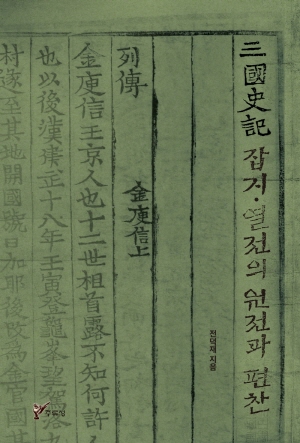 三國史記 잡지·열전의 원전과 편찬
전덕재 지음
列傳
金庾信上
金庾信王京人也十二世祖首露不知何許人
也以後漢建正十八年壬寅登龜峯望駕洛九
村遂至其地開國號曰加耶後改爲金官國其
주류성